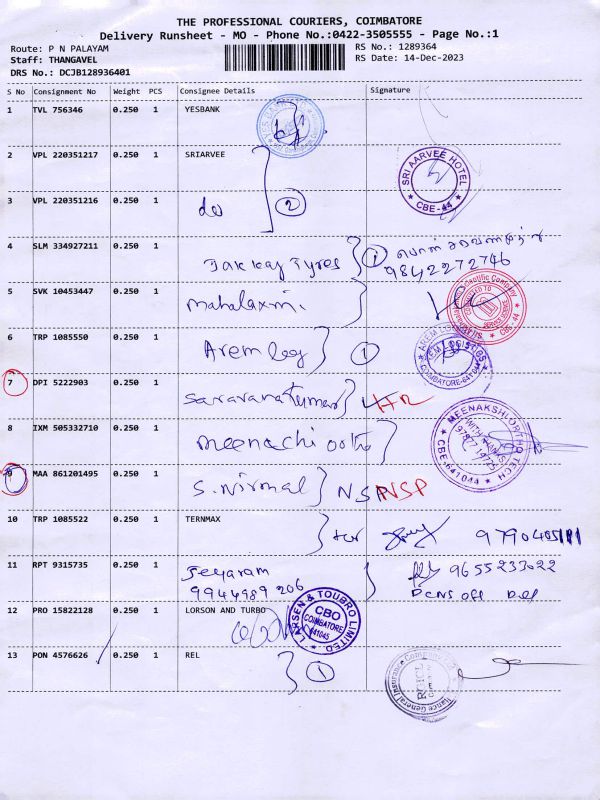 THE PROFESSIONAL COURIERS, COIMBATORE
Delivery Runsheet - MO - Phone No.:0422-3505555 - Page No.:1
Route: P N PALAYAM
RS No.: 1289364
Staff: THANGAVEL
RS Date: 14-Dec-2023
DRS No.: DCJB128936401
S No Consignment No Weight PCS Consignee Details Signature
1 TVL 756346 0.250 1 YESBANK
2 VPL 220351217 0.250 1 SRIARVEE
SRI AARVEE HOTEL
CBE-44
3 VPL 220351216 0.250 1 do 2
4 SLM 334927211 0.250 1 Jakkay Tyres 1
9842272746
5 SVK 10453447 0.250 1 mahalaxmi
6 TRP 1085550 0.250 1 Arem log 1
COIMBATORE-641044
7 DPI 5222903 0.250 1 Saravanakumar HR
8 IXM 505332710 0.250 1 meenachi ortho
MEENAKSHI ORTHO TECH
WITH THANKS
CBE-641044
9 MAA 861201495 0.250 1 S. Nirmal NSP NSP
10 TRP 1085522 0.250 1 TERNMAX
11 RPT 9315735 0.250 1 Jeyaram 9655233022
9944989206
12 PRO 15822128 0.250 1 LORSON AND TURBO
LARSEN & TOUBRO LIMITED
CBO
COIMBATORE
641045
13 PON 4576626 0.250 1 REL 1
RGICL